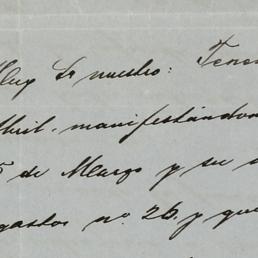 Muy Sr nuestro: Tene
Abril, manifestándo
5 de Marzo y su
gastos no. 26. y que